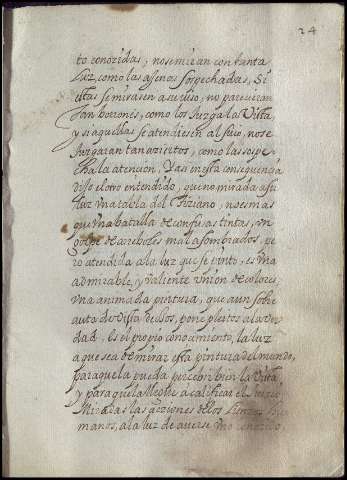 24
to conozidas, no se miran con tanta
Luz, como las agenas sospechadas, Si
estas se mirasen a su viso, no parecieran
tan borrones, como los Juzga la Vista,
y si aquellas se atendiesen al suio, no se
Juzgaran tan aziertos, como las sospe
cha la atencion, Das en esta consequencia
dijo el otro entendido, que no mirada a su
luz Vna tabla del Tiziano, no es mas
que Vna batalla de confusas tintas, vn
golpe de arreboles mal asombrados, pe
ro atendida a la luz que se pinto, es Vna
admirable, y valiente Vnion de colores,
Vna animada pintura, que aun sobre
auto de Vista de ojos, pone pleitos a la Ver
dad, es el propio conocimiento, la luz
a que se a de mirar esta pintura del mundo,
para que la pueda percebir bien la Vista,
y para que la Mente a calificar el Juicio,
Miradas las acziones de los
manos, a la luz de averse